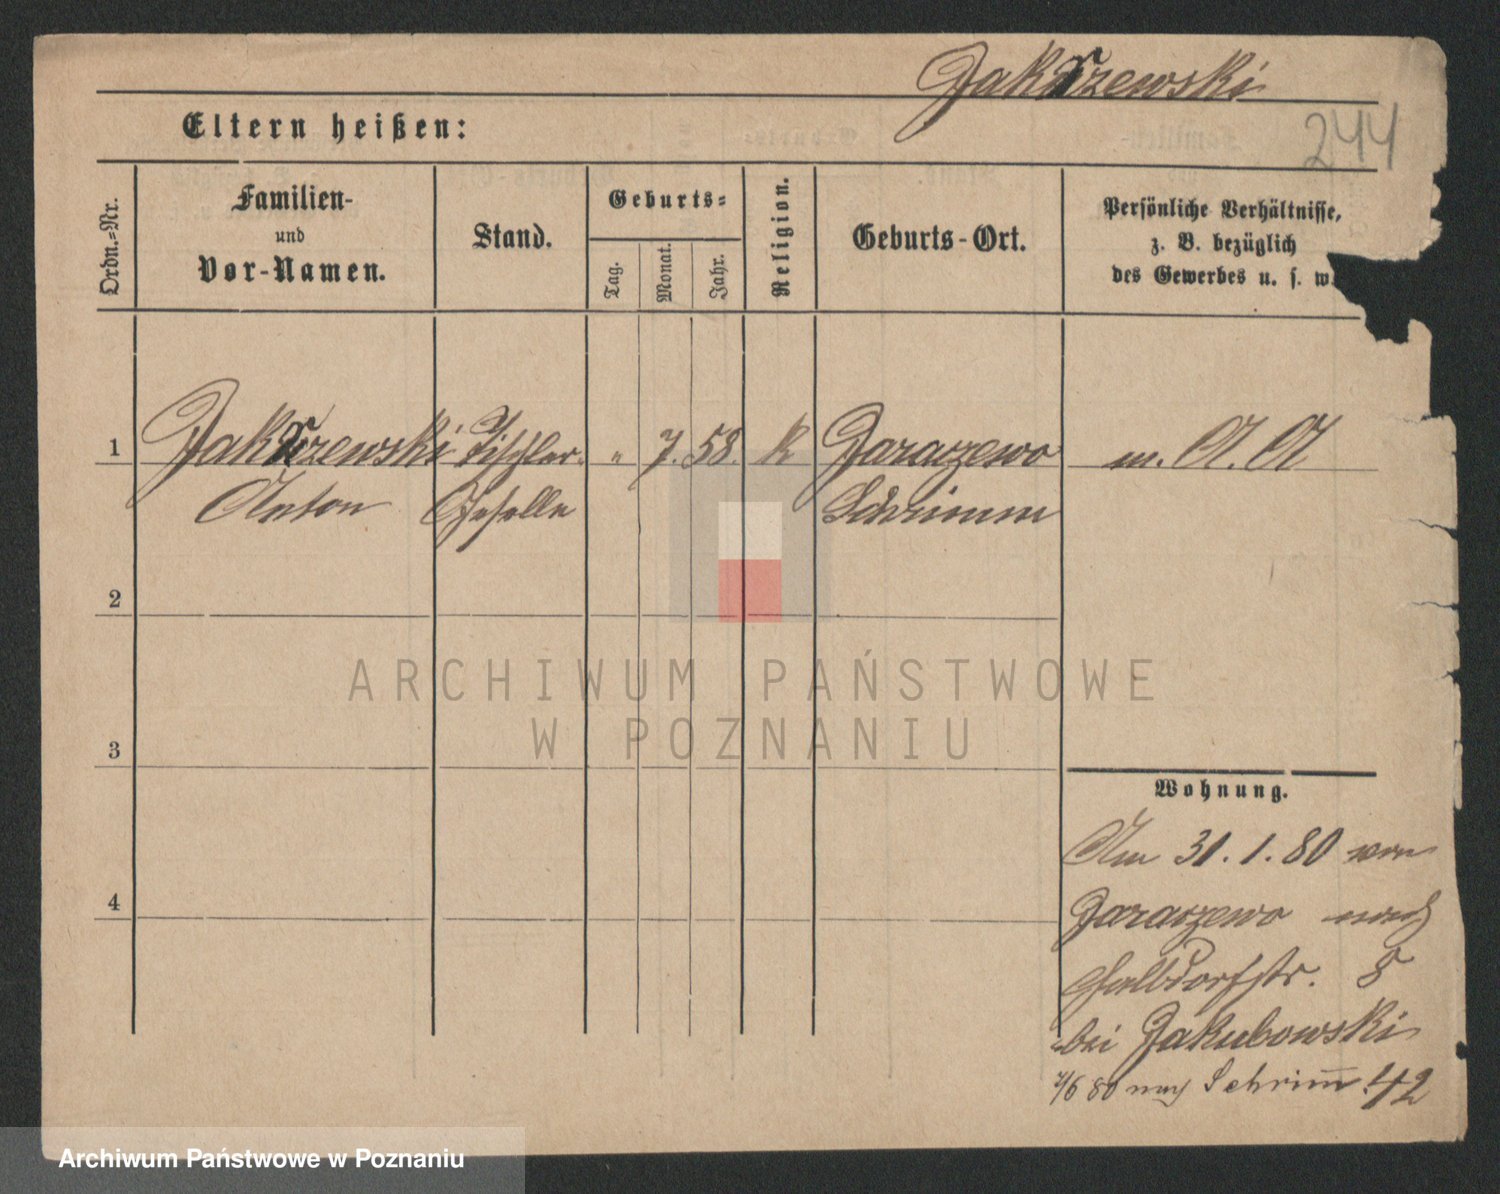 Jakszewski
244
Eltern heißen:
Ordn.-Nr.
Familien-
und
Vor-Namen.
Stand.
Geburts-
Tag.
Monat.
Jahr.
Religion.
Geburts-Ort.
Persönliche Verhältnisse,
z. B. bezüglich
des Gewerbes u. s. w.
1 Jakszewski Tischler " 7. 58. k Jaraczewo m. A. A
Anton Geselle Schrimm
2
3
4
Wohnung.
Am 31. 1. 80 von
Jaraczewo nach
Halbdorfstr. 8
bei Jakubowski
/6 80 nach Schrim̅ 42
ARCHIWUM PAŃSTWOWE
W POZNANIU
Archiwum Państwowe w Poznaniu